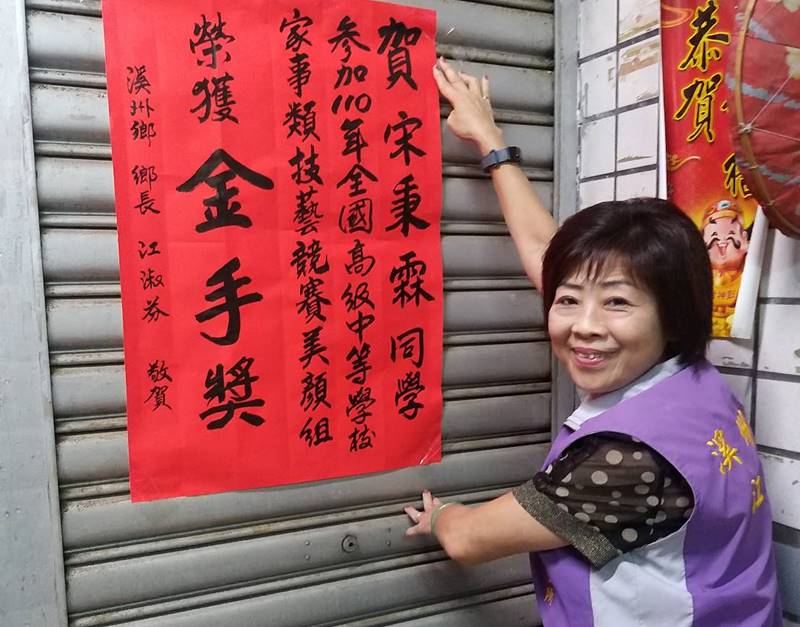 賀宋秉霖同學
參加110年全國高級中等學校
家事類技藝競賽美顏組
榮獲金手獎
溪州鄉 鄉長 江淑芬 敬賀
恭賀
溪州
江